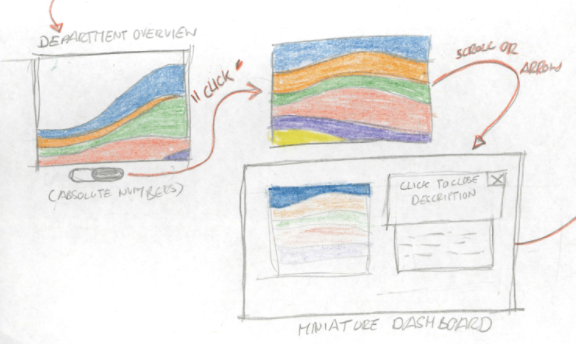 DEPARTMENT OVERVIEW
"CLICK"
(ABSOLUTE NUMBERS)
SCROLL OR
ARROW
CLICK TO CLOSE
DESCRIPTION
X
MINIATURE DASHBOARD